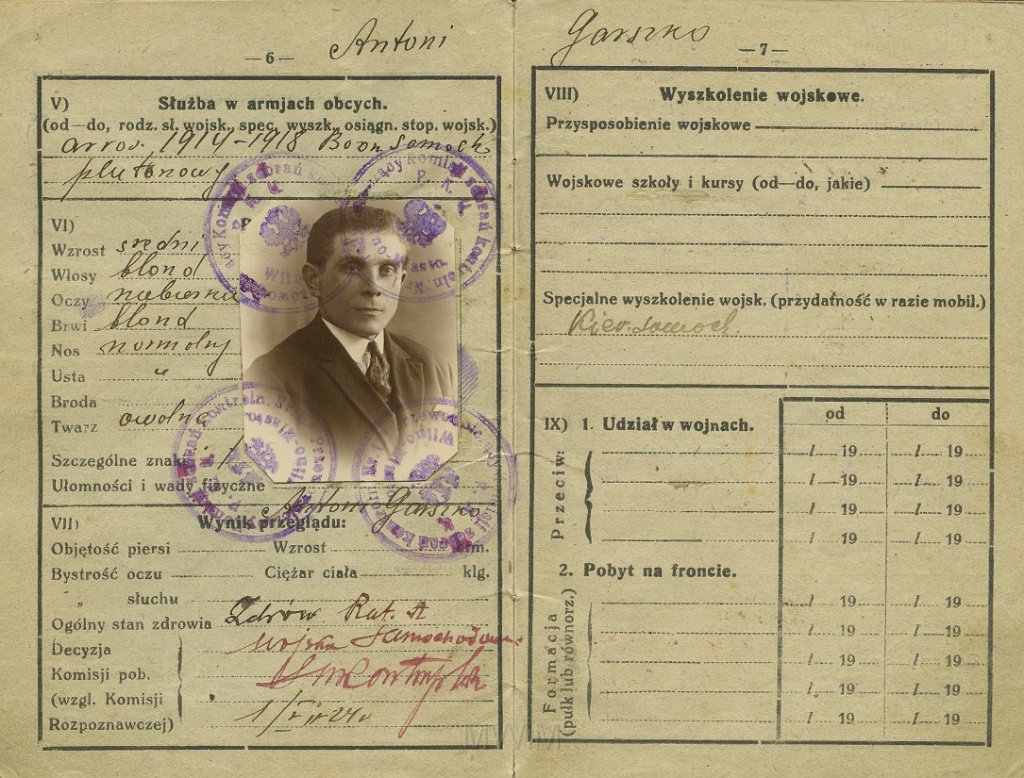 — 6 — Antoni
V) Służba w armjach obcych.
(od—do, rodz. sł. wojsk., spec. wyszk., osiągn. stop. wojsk.)
1914-1918 Samoch
plutonowy
VI)
Wzrost średni
Włosy blond
Oczy niebieskie
Brwi blond
Nos normalny
Usta "
Broda
Twarz owalna
Szczególne znaki
Ułomności i wady fizyczne
Antoni Garszko
VII) Wynik przeglądu:
Objętość piersi Wzrost ctm.
Bystrość oczu Ciężar ciała klg.
" słuchu
Ogólny stan zdrowia Zdrów Kat. A
Decyzja wojska Samochodowe
Komisji pob.
(wzgl. Komisji
Rozpoznawczej)
Garszko — 7 —
VIII) Wyszkolenie wojskowe.
Przysposobienie wojskowe
Wojskowe szkoły i kursy (od—do, jakie)
Specjalne wyszkolenie wojsk. (przydatność w razie mobil.)
Kier. samoch.
od do
IX) 1. Udział w wojnach.
Przeciw:
/ 19 / 19
/ 19 / 19
/ 19 / 19
/ 19 / 19
2. Pobyt na froncie.
Formacja
(pułk lub równorz.)
/ 19 / 19
/ 19 / 19
/ 19 / 19
/ 19 / 19
/ 19 / 19